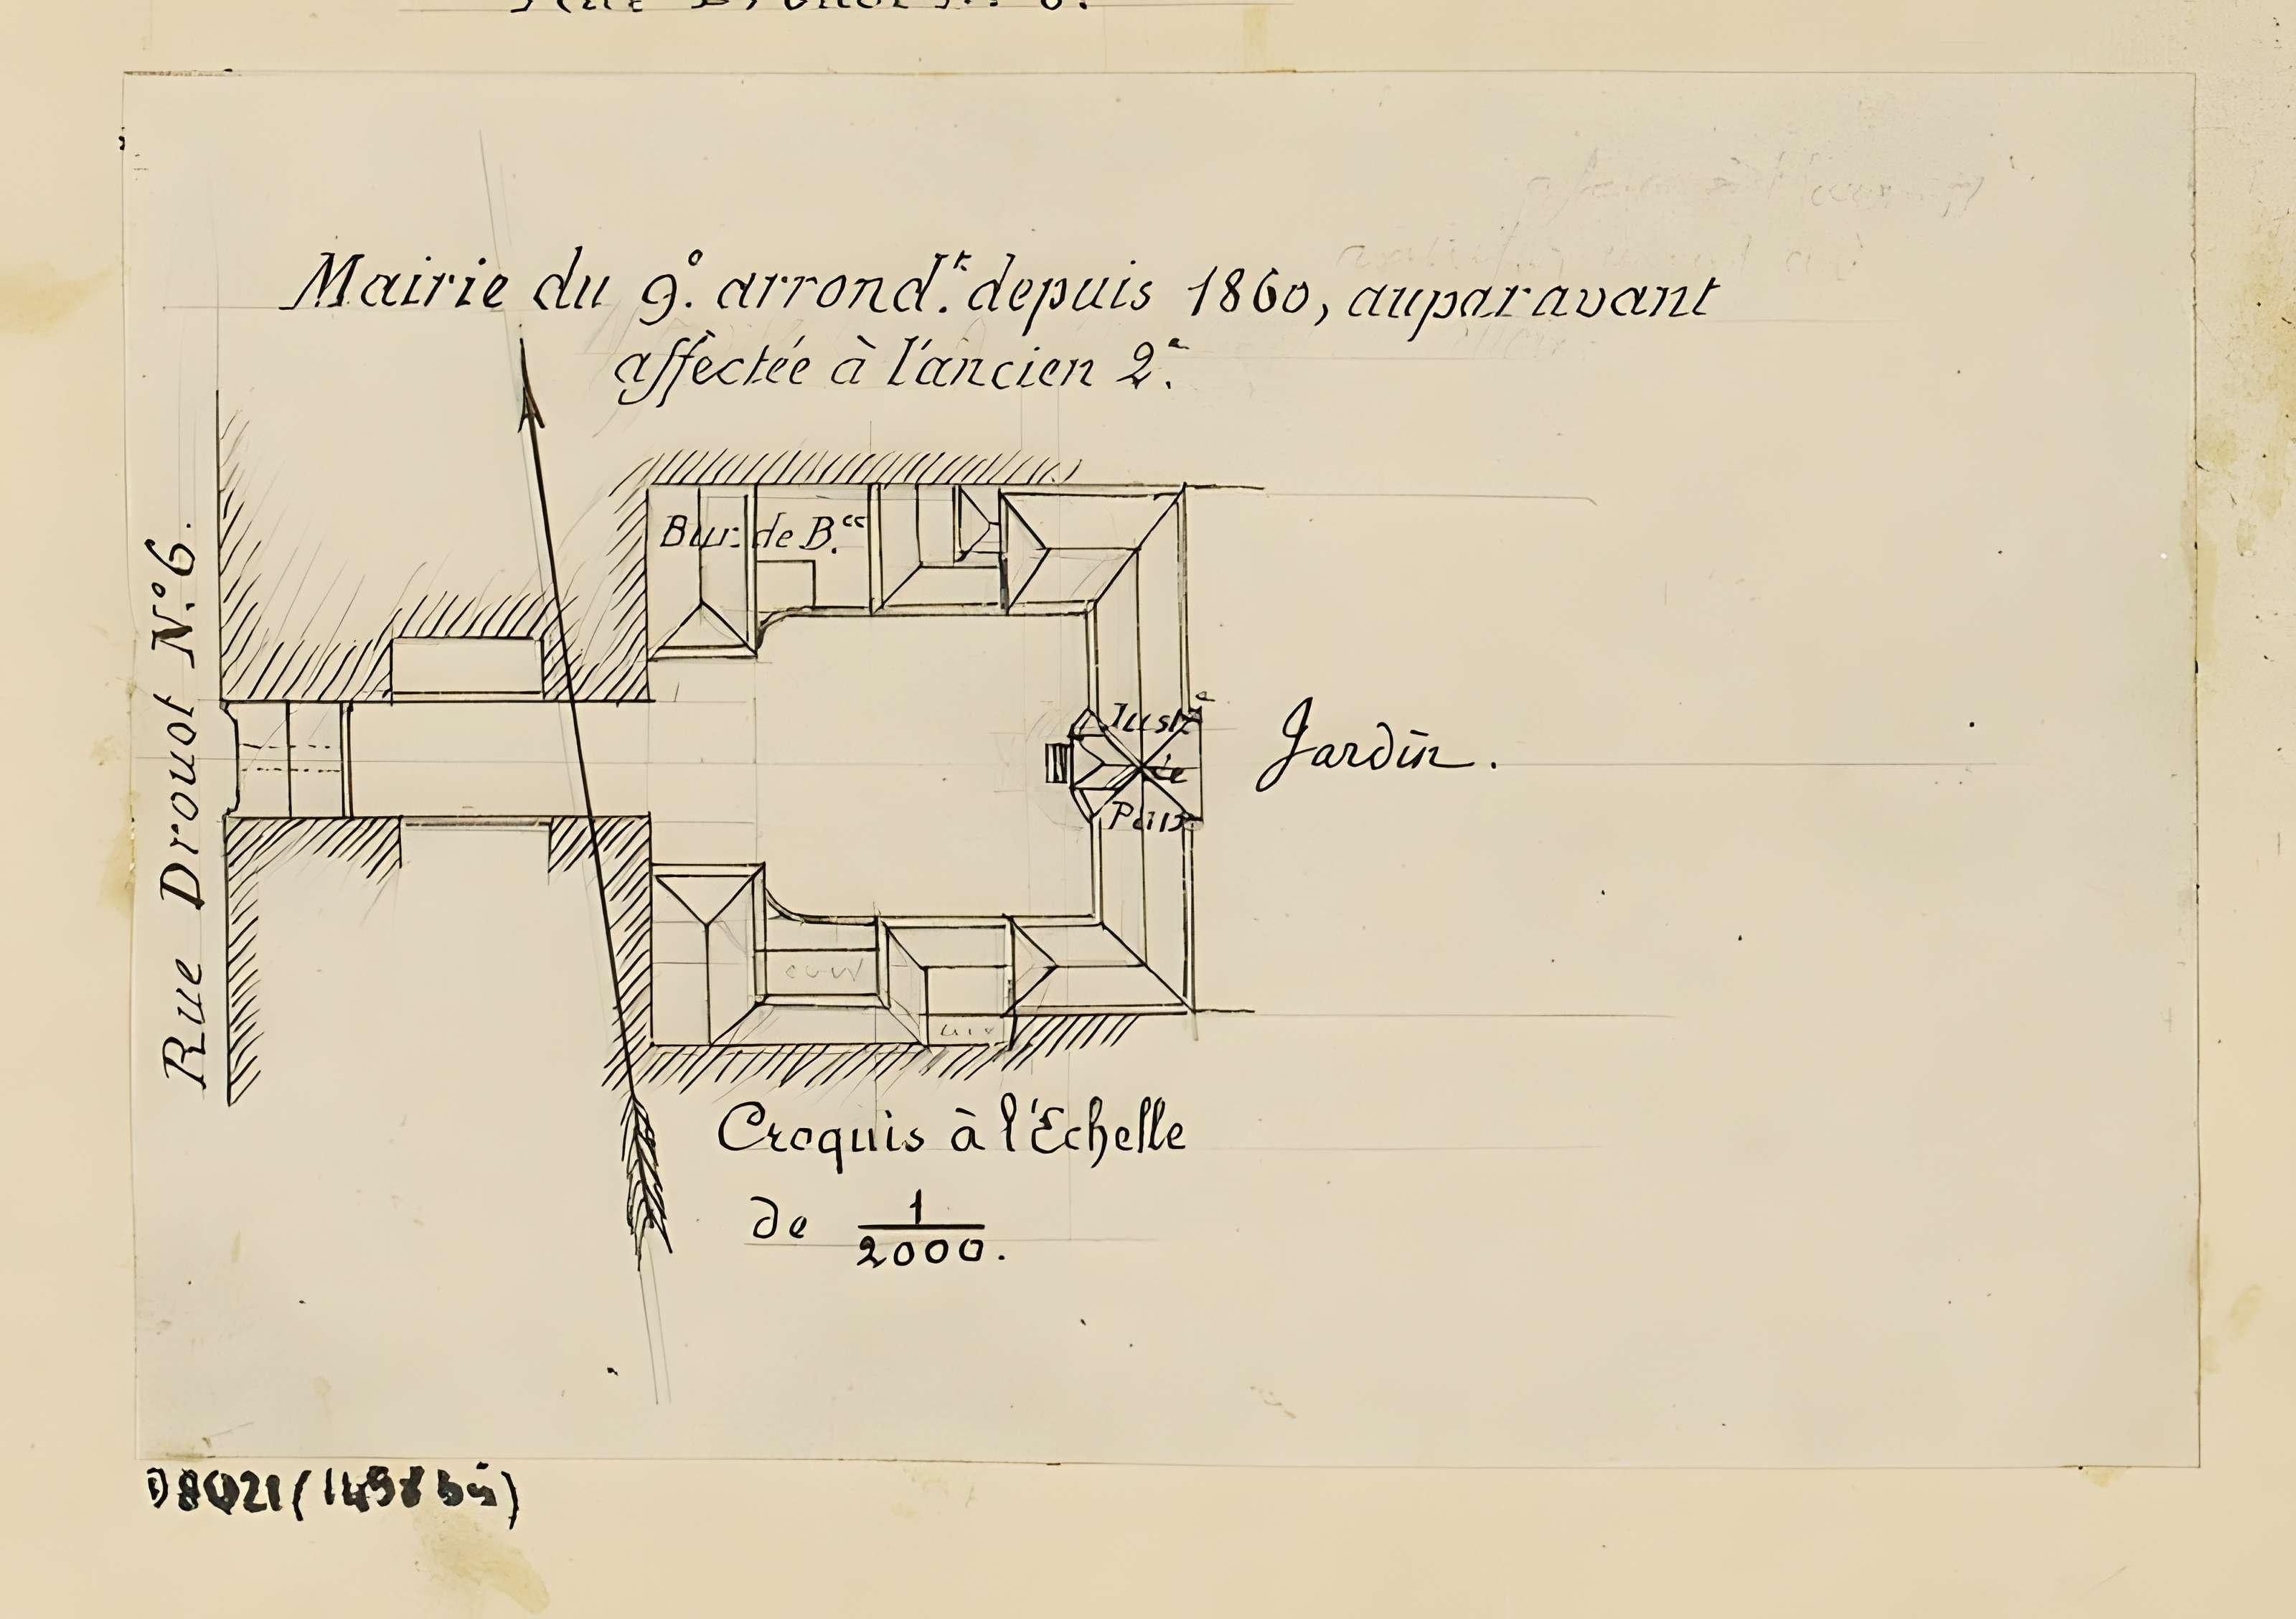 Rue Drouot N.º 6.
Mairie du 9.e arrond.t depuis 1860, auparavant
affectée à l'ancien 2.e
Bur. de B.ce
Rue Drouot N.º 6.
Just.e
de
Paix
Jardin.
cour
Croquis à l'Echelle
de 1/2000.
D8021 (1498 bis)